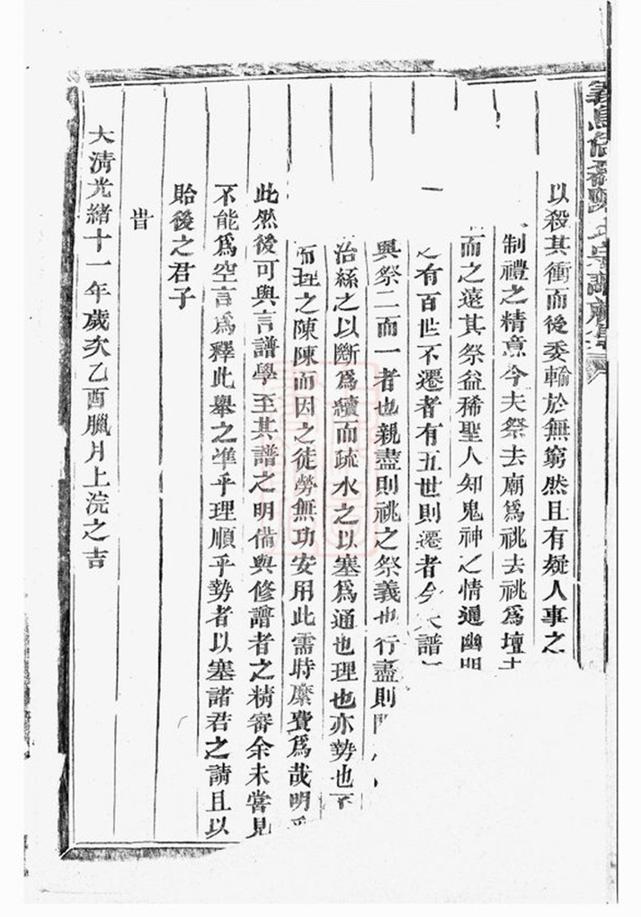 以殺其衝而後委輸於無窮然且有疑人事之
制禮之精意今夫祭去廟爲祧去祧爲壇去
而之遠其祭益稀聖人知鬼神之情通幽明
一
之有百世不遷者有五世則遷者今夫譜
與祭二而一者也親盡則祧之祭義也行盡則
治絲之以斷爲續而疏水之以塞爲通也理也亦勢也
而理之陳陳而因之徒勞無功安用此需時糜費爲哉明乎
此然後可與言譜學至其譜之明備與修譜者之精審余未嘗見
不能爲空言爲釋此舉之準乎理順乎勢者以塞諸君之請且以
貽後之君子
旹
大清光緒十一年歲次乙酉臘月上浣之吉